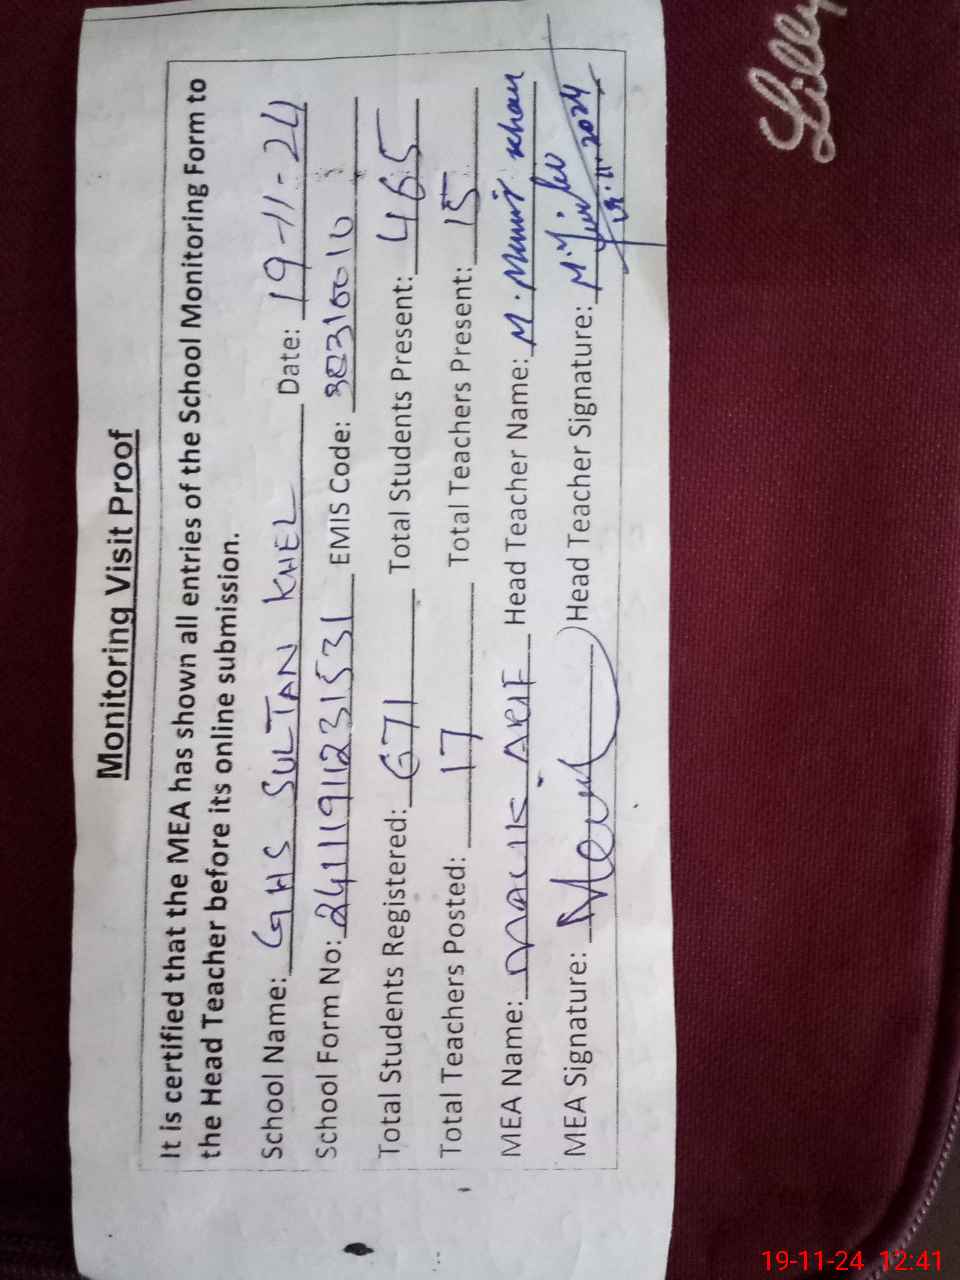 Monitoring Visit Proof
It is certified that the MEA has shown all entries of the School Monitoring Form to
the Head Teacher before its online submission.
School Name: GHS SULTAN KHEL Date: 19-11-24
School Form No: 24111911231531 EMIS Code: 38310010
Total Students Registered: 671 Total Students Present: 465
Total Teachers Posted: 17 Total Teachers Present: 15
MEA Name: MALIK ARIF Head Teacher Name: M. Munir Khan
MEA Signature: Head Teacher Signature:
19.11.2024
Lilly
19-11-24 12:41